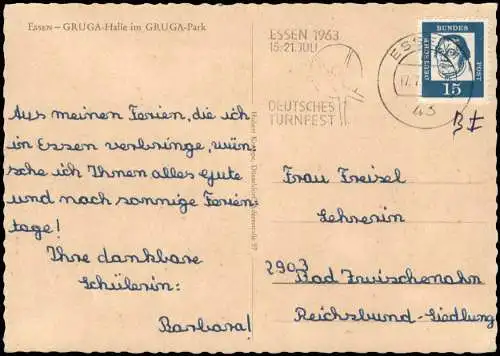 Essen – GRUGA-Halle im GRUGA-Park
Aus meinen Ferien, die ich
in Essen verbringe, wün-
sche ich Ihnen alles gute
und noch sonnige Ferien-
tage!
Ihre dankbare
Schülerin:
Barbara!
ESSEN 1963
15.-21. JULI
DEUTSCHES
TURNFEST
ESSEN
43
DEUTSCHE
BUNDES
POST
15
B I
Frau Freisel
Lehrerin
2903
Bad Zwischenahn
Reichsbund-Siedlung